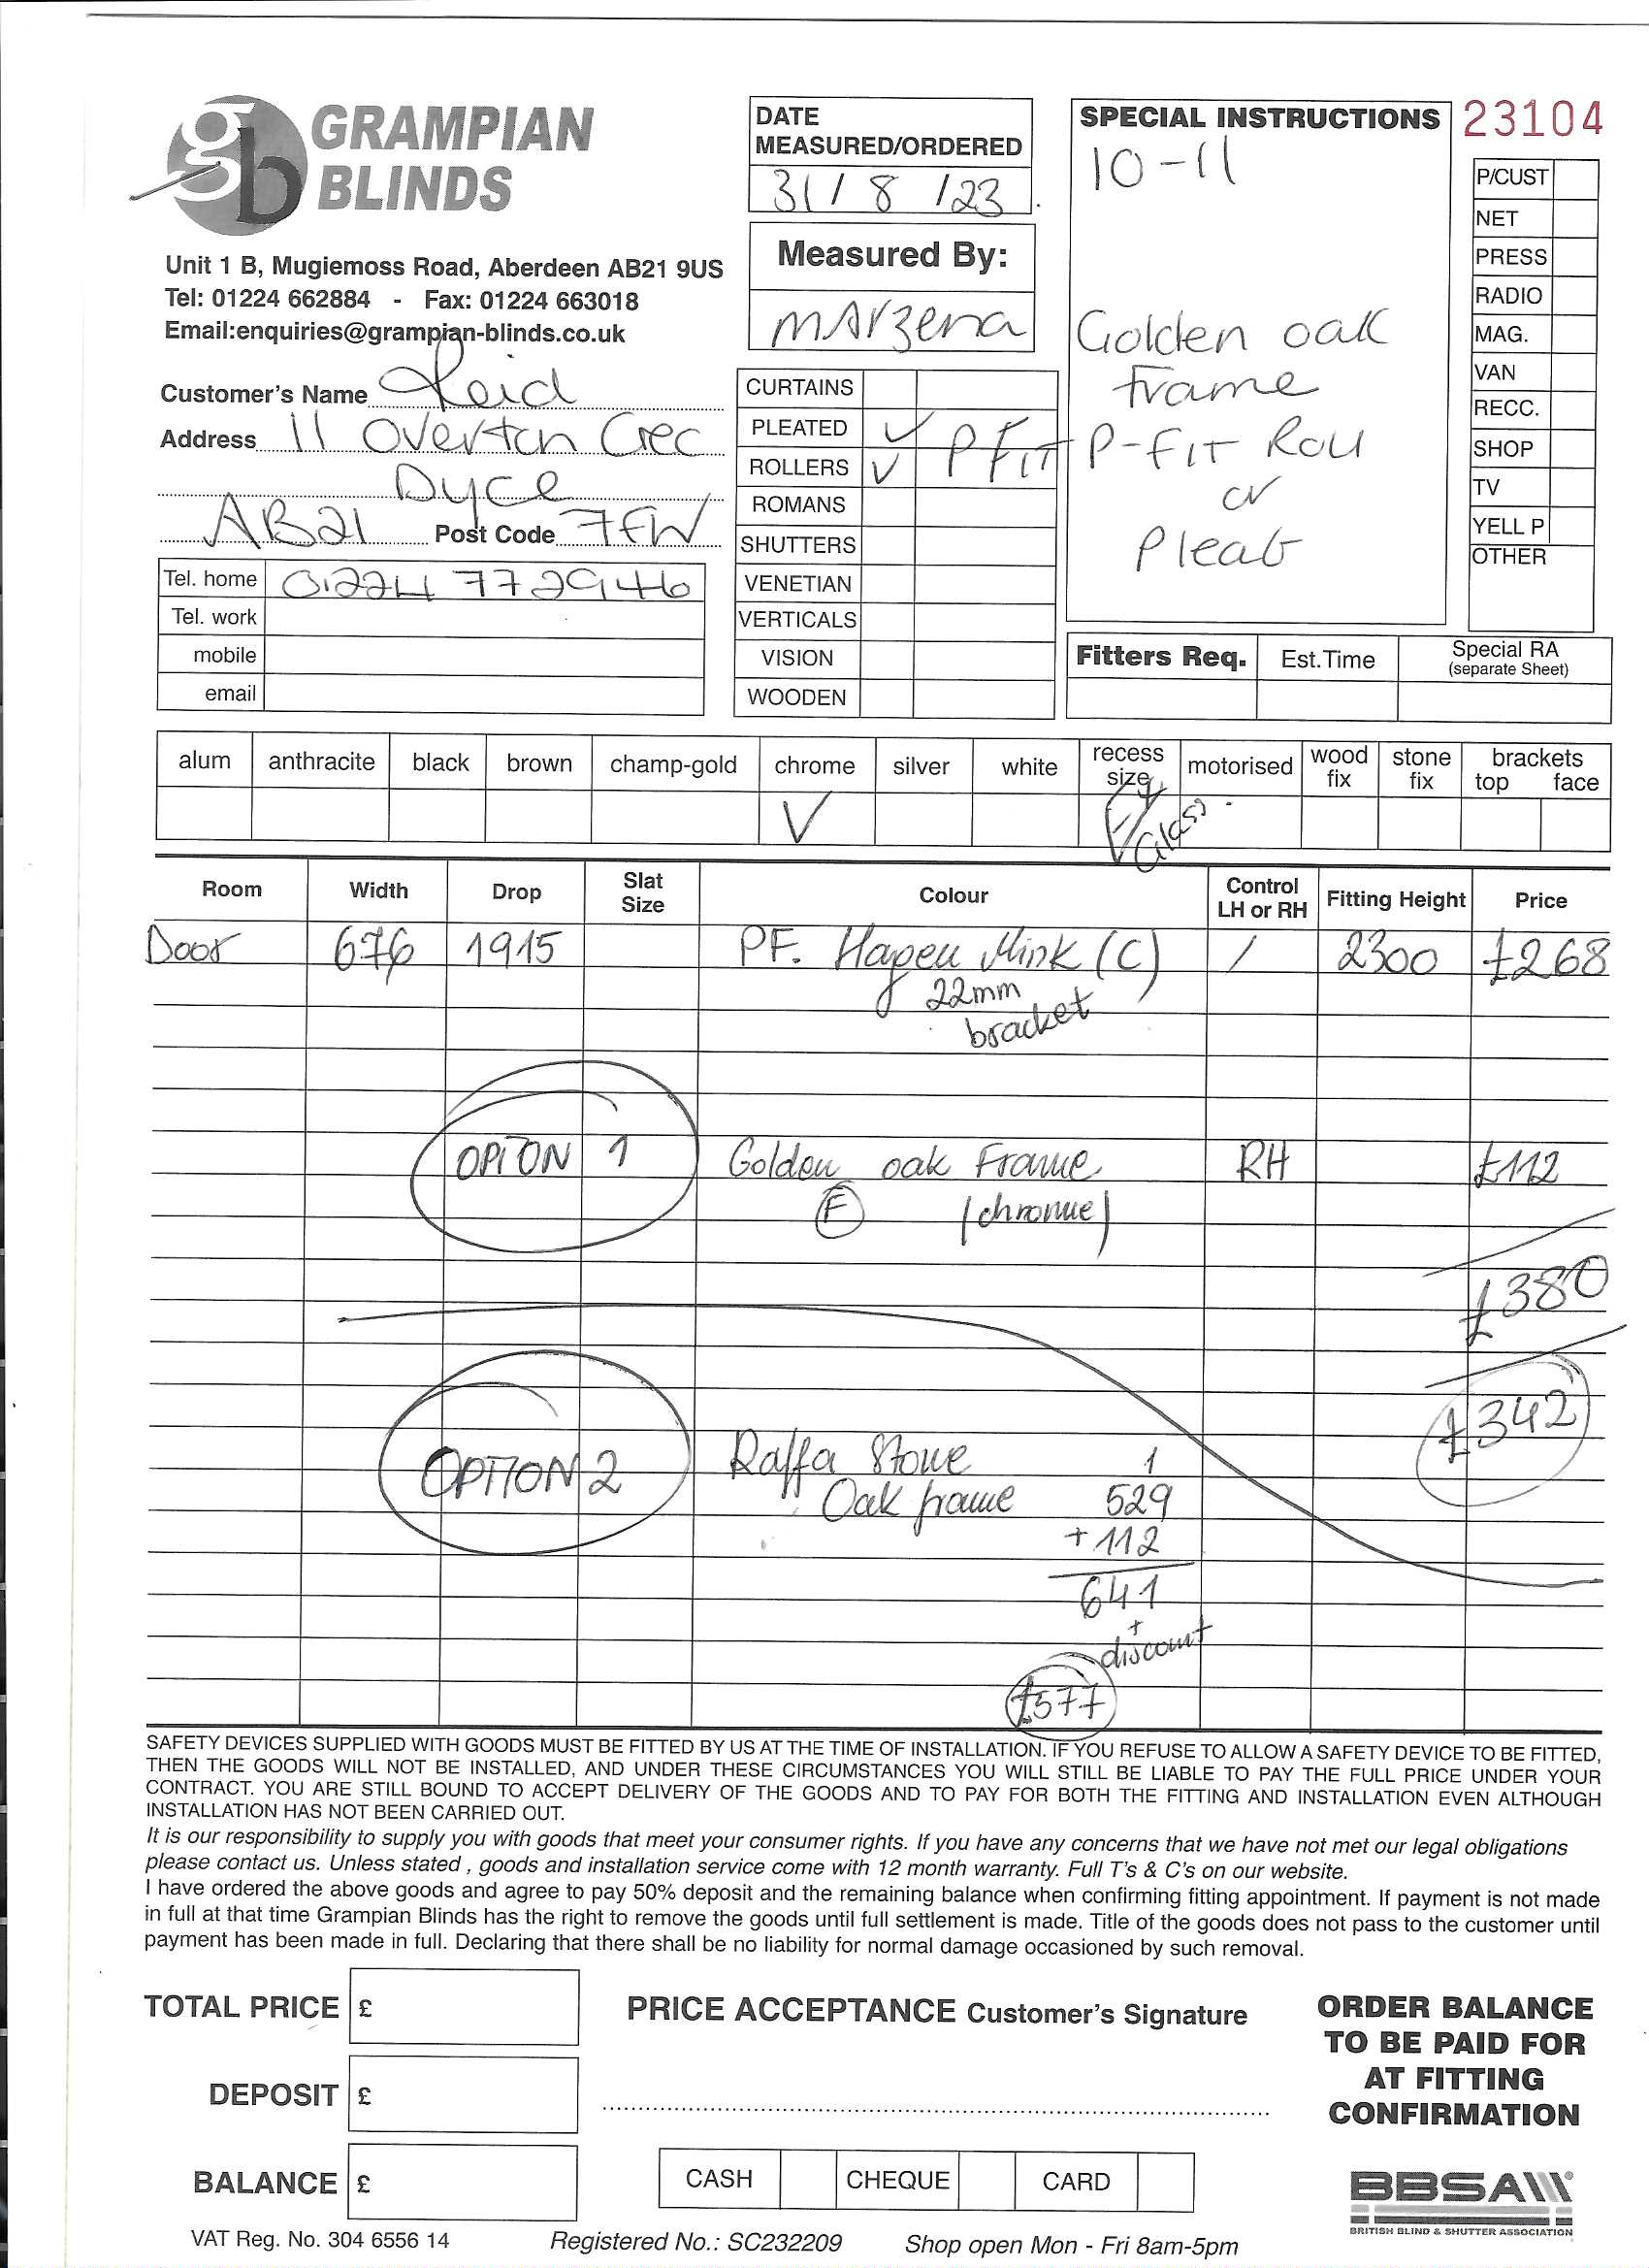 gb GRAMPIAN
BLINDS
Unit 1 B, Mugiemoss Road, Aberdeen AB21 9US
Tel: 01224 662884 - Fax: 01224 663018
Email:enquiries@grampian-blinds.co.uk
Customer's Name Reid
Address 11 Overton Crec
Dyce
AB21 Post Code 7FW
Tel. home 01224 772946
Tel. work
mobile
email
DATE
MEASURED/ORDERED
31 / 8 /23
Measured By:
MArzena
CURTAINS
PLEATED ✓
ROLLERS ✓ P FIT
ROMANS
SHUTTERS
VENETIAN
VERTICALS
VISION
WOODEN
SPECIAL INSTRUCTIONS
10-11
Golden oak
Frame
P-FIT Roll
or
Pleat
23104
P/CUST
NET
PRESS
RADIO
MAG.
VAN
RECC.
SHOP
TV
YELL P
OTHER
Fitters Req. Est.Time Special RA
(separate Sheet)
alum anthracite black brown champ-gold chrome silver white recess size motorised wood fix stone fix brackets top face
✓ Glass
Room Width Drop Slat Size Colour Control LH or RH Fitting Height Price
Door 676 1915 PF. Hapeu Mink (C) / 2300 £268
22mm
bracket
OPTON 1 Golden oak Frame RH £112
F (chrome)
£380
£342
OPTION 2 Raffa Stone 1
Oak frame 529
+ 112
641
+
discount
£577
SAFETY DEVICES SUPPLIED WITH GOODS MUST BE FITTED BY US AT THE TIME OF INSTALLATION. IF YOU REFUSE TO ALLOW A SAFETY DEVICE TO BE FITTED,
THEN THE GOODS WILL NOT BE INSTALLED, AND UNDER THESE CIRCUMSTANCES YOU WILL STILL BE LIABLE TO PAY THE FULL PRICE UNDER YOUR
CONTRACT. YOU ARE STILL BOUND TO ACCEPT DELIVERY OF THE GOODS AND TO PAY FOR BOTH THE FITTING AND INSTALLATION EVEN ALTHOUGH
INSTALLATION HAS NOT BEEN CARRIED OUT.
It is our responsibility to supply you with goods that meet your consumer rights. If you have any concerns that we have not met our legal obligations
please contact us. Unless stated , goods and installation service come with 12 month warranty. Full T's & C's on our website.
I have ordered the above goods and agree to pay 50% deposit and the remaining balance when confirming fitting appointment. If payment is not made
in full at that time Grampian Blinds has the right to remove the goods until full settlement is made. Title of the goods does not pass to the customer until
payment has been made in full. Declaring that there shall be no liability for normal damage occasioned by such removal.
TOTAL PRICE £
DEPOSIT £
BALANCE £
PRICE ACCEPTANCE Customer's Signature
CASH CHEQUE CARD
ORDER BALANCE
TO BE PAID FOR
AT FITTING
CONFIRMATION
BBSA
BRITISH BLIND & SHUTTER ASSOCIATION
VAT Reg. No. 304 6556 14 Registered No.: SC232209 Shop open Mon - Fri 8am-5pm